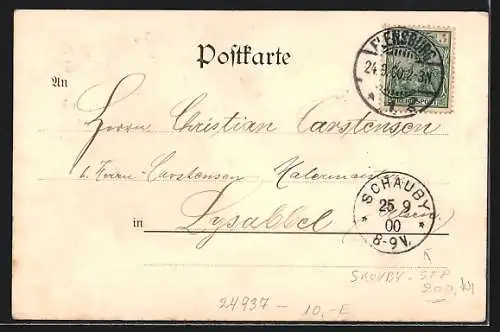 Postkarte
FLENSBURG
24.9.00.2-3N
* 1. *
REICHSPOST
An
Herrn Christian Carstensen
b. Herrn Carstensen Malermeister
in Lysabbel
SCHAUBY
25 9
00
8-9V.
SKOVBY - STP
200,-
24937 - 10,-E